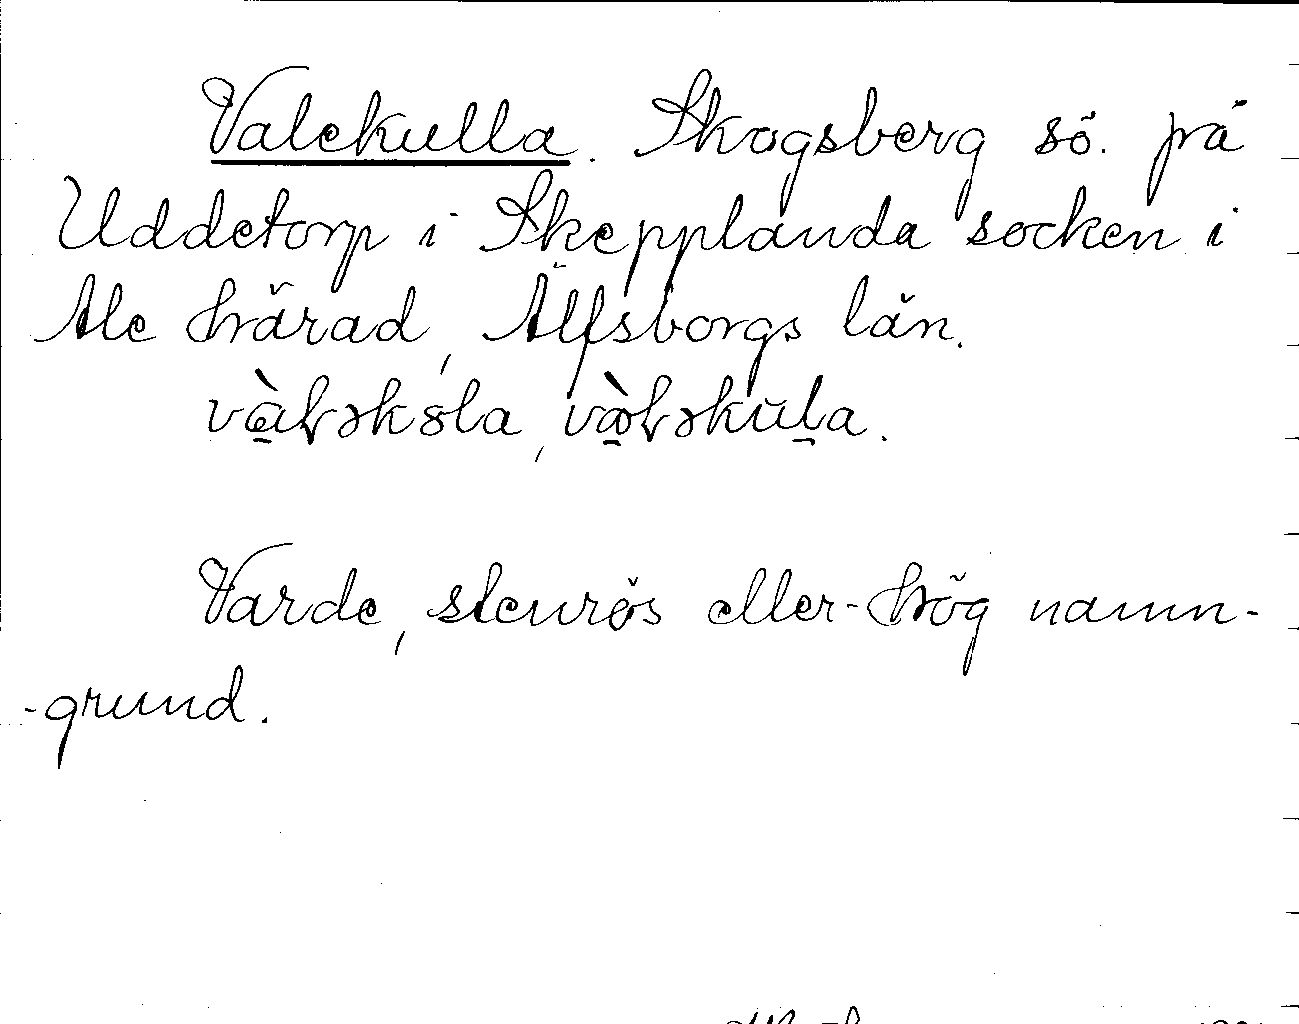 Valekulla. Skogsberg sö. på
Uddetorp i Skepplanda socken i
Ale härad, Älfsborgs län.
Varde, stenrös eller hög namn-
-grund.